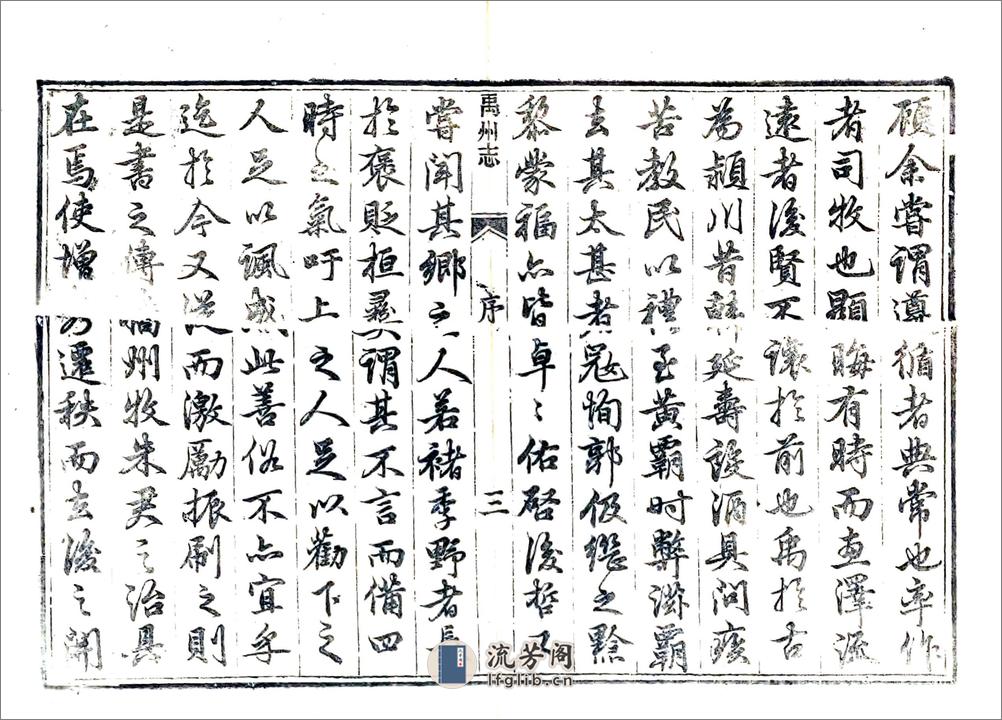 顧余嘗謂遵循者典常也率作
者司牧也顯晦有時而惠澤流
遠者後賢不讓於前也禹於古
為潁川昔韓延壽設酒具問疾
苦教民以禮至黃霸时弊滋霸
去其太甚者寇恂郭伋繼之黔
黎蒙福亦皆卓々佑啓後哲又
禹州志
序
三
嘗聞其鄉之人若褚季野者長
於褒貶桓彝謂其不言而備四
時之氣吁上之人足以勸下之
人足以諷感此善俗不亦宜乎
迄於今又從而激勵振刷之則
是書之傳州牧朱尹之治具
在焉使增遷秩而去後之開
流芳阁
lfglib.cn